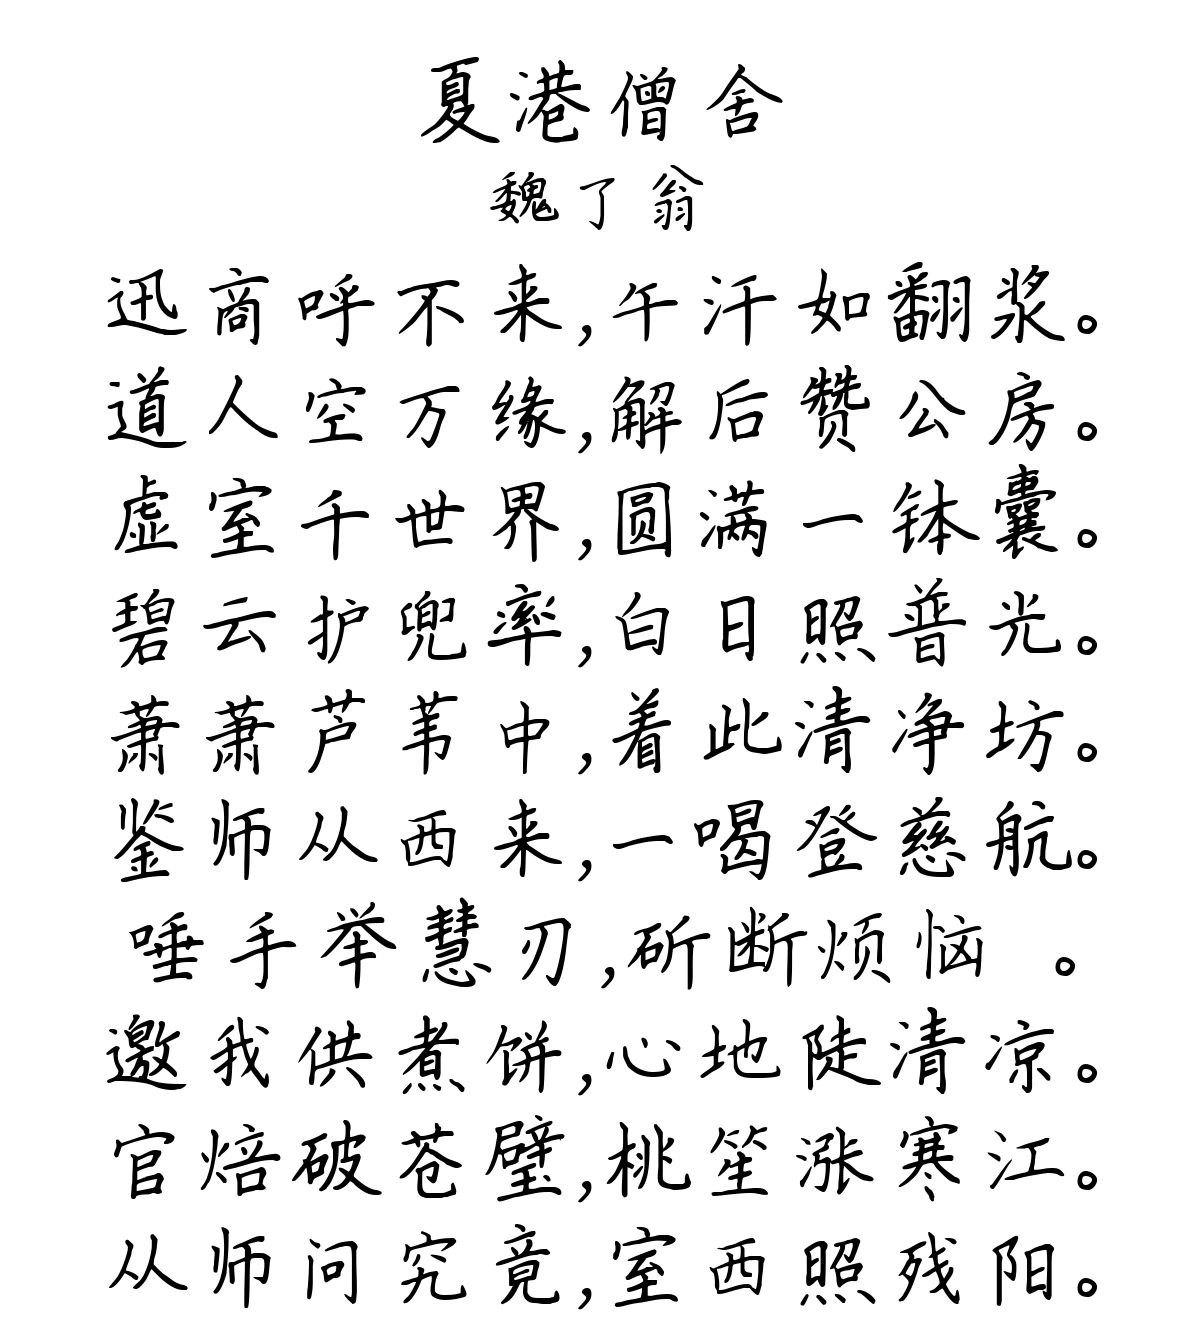 夏港僧舍
魏了翁
迅商呼不来,午汗如翻浆。
道人空万缘,解后赞公房。
虚室千世界,圆满一钵囊。
碧云护兜率,白日照普光。
萧萧芦苇中,着此清净坊。
鉴师从西来,一喝登慈航。
唾手举慧刃,斫断烦恼 。
邀我供煮饼,心地陡清凉。
官焙破苍璧,桃笙涨寒江。
从师问究竟,室西照残阳。